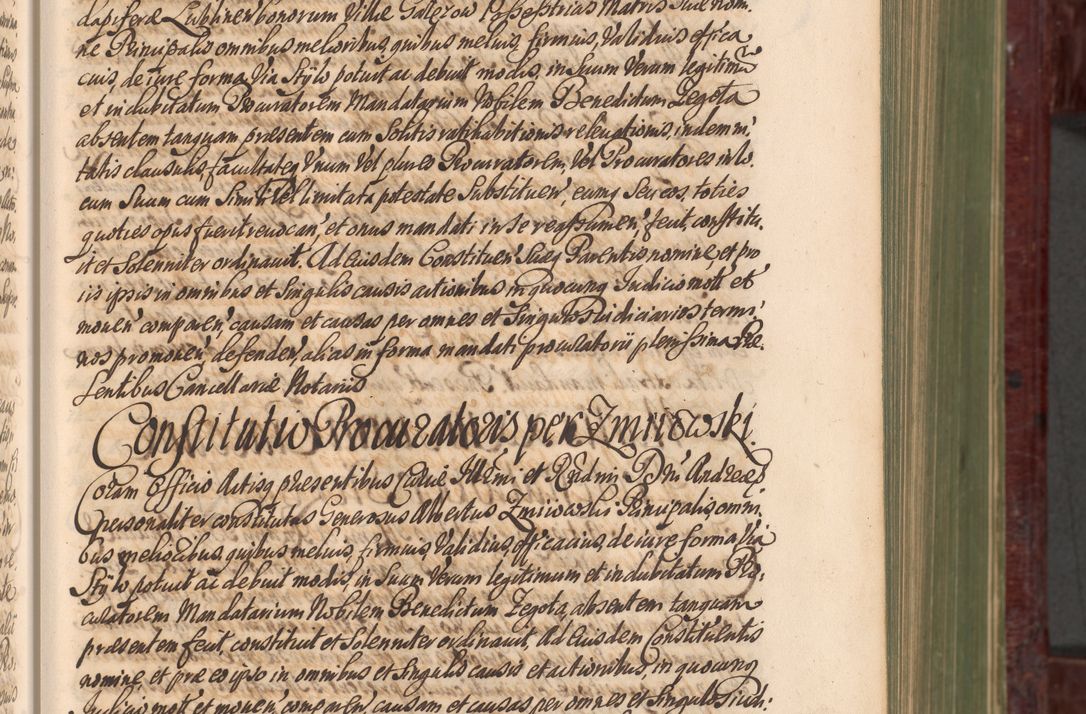 dapiferæ Lublinen bonorum Villæ Galęzow Possessotricis Matris Suæ nom.
ne Principalis omnibus melioribus, quibus melius, firmius, Validius effica
cius, de iure forma Via Stylo potuit ac debuit modis, in Suum Verum legitimū
et indubitatum Procuratorem Mandatarium Nobilem Benedictum Zegota
absentem tanquam præsentem cum Solitis ratihabitionis releuationis, indemni,
tatis clausulis, facultateq Vnum Vel plures Procuratorem, Vel Procuratores in lo.
cum Suum cum Simili Vel limitata potestate Substituen, eumq Seu eos, toties
quoties opus fuerit reuocan, et onus mandati in se reassumen, fecit, constitu.
it et Solenniter ordinauit. Ad Eiusdem Constituen Suæq Parentis nomine, et pro
iis ipsis in omnibus et Singulis causis actionibus in quocunq Iudicio mott et
mouen comparen, causam et causas per omnes et Singulos iudiciarios termi,
nos promouen, defenden, alias in forma mandati procuratorii plenissima Præ.
sentibus Cancellariæ Notariis
Constitutio Procuratoris per Zmiiowski.
Coram Officio Actisq præsentibus Curiæ Illrmi et Rndmi D. Dni Andreæ
personaliter constitutus Generosus Albertus Zmiiowski Principalis omni,
bus melioribus, quibus melius, firmius, Validius, efficacius, de iure forma Via
Stylo potuit ac debuit modis, in Suum Verum legitimum et indubitatum Pro,
curatorem Mandatarium Nobilem Benedictum Zegota, absentem tanquam
præsentem fecit, constituit et Solenniter ordinauit, Ad Eiusdem Constituentis
nomine, et pro eo ipso in omnibus et Singulis causis et actionibus, in quocunq
Iudicio mott et mouen, comparen, causam et causas per omnes et Singulos iudi: